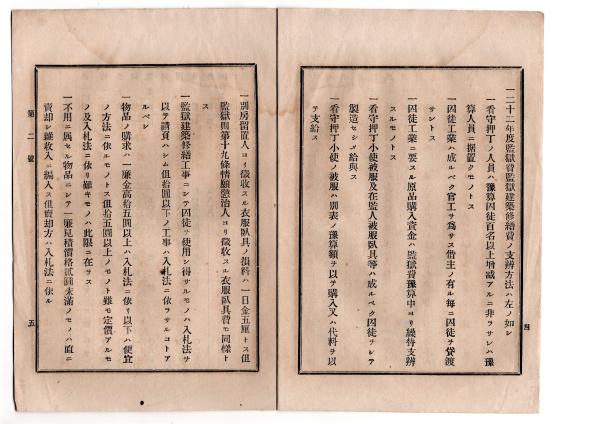 四
一二十二年度監獄費監獄建築修繕費ノ支辨方法ハ左ノ如シ
一看守押丁ノ人員ハ豫算囚徒百名以上增减アルニ非ラサレハ豫
算人員ニ据置クモノトス
一囚徒工業ハ成ルベク官工ヲ爲サス借主ノ有ル每ニ囚徒ヲ貸渡
サントス
一囚徒工業ニ要スル原品購入資金ハ監獄費豫算中ヨリ繰替支辨
スルモノトス
一看守押丁小使被服及在監人被服臥具等ハ成ルベク囚徒ヲシテ
製造セシメ給與ス
一看守押丁小使ノ被服ハ別表ノ豫算額ヲ以テ購入又ハ代料ヲ以
テ支給ス
一別房留置人ヨリ徵收スル衣服臥具ノ損料ハ一日金五厘トス但
監獄則第十九條情願懲治人ヨリ徵收スル衣服臥具費モ同樣ト
ス
一監獄建築修繕工事ニシテ囚徒ヲ使用シ得サルモノハ入札法ヲ
以テ請負ハシム但拾圓以下ノ工事ハ入札法ニ依ラサルコトア
ルベシ
一物品ノ購求ハ一廉金高拾五圓以上ハ入札法ニ依リ以下ハ便宜
ノ方法ニ依ルモノトス但拾五圓以上ノモノト雖モ定價アルモ
ノ及入札法ニ依リ難キモノハ此限ニ在ラス
一不用ニ属セル物品ニシテ一廉見積價格貳圓未滿ノモノハ直ニ
賣却シ雜收入ニ編入ス但賣却方ハ入札法ニ依ル
第二號
五